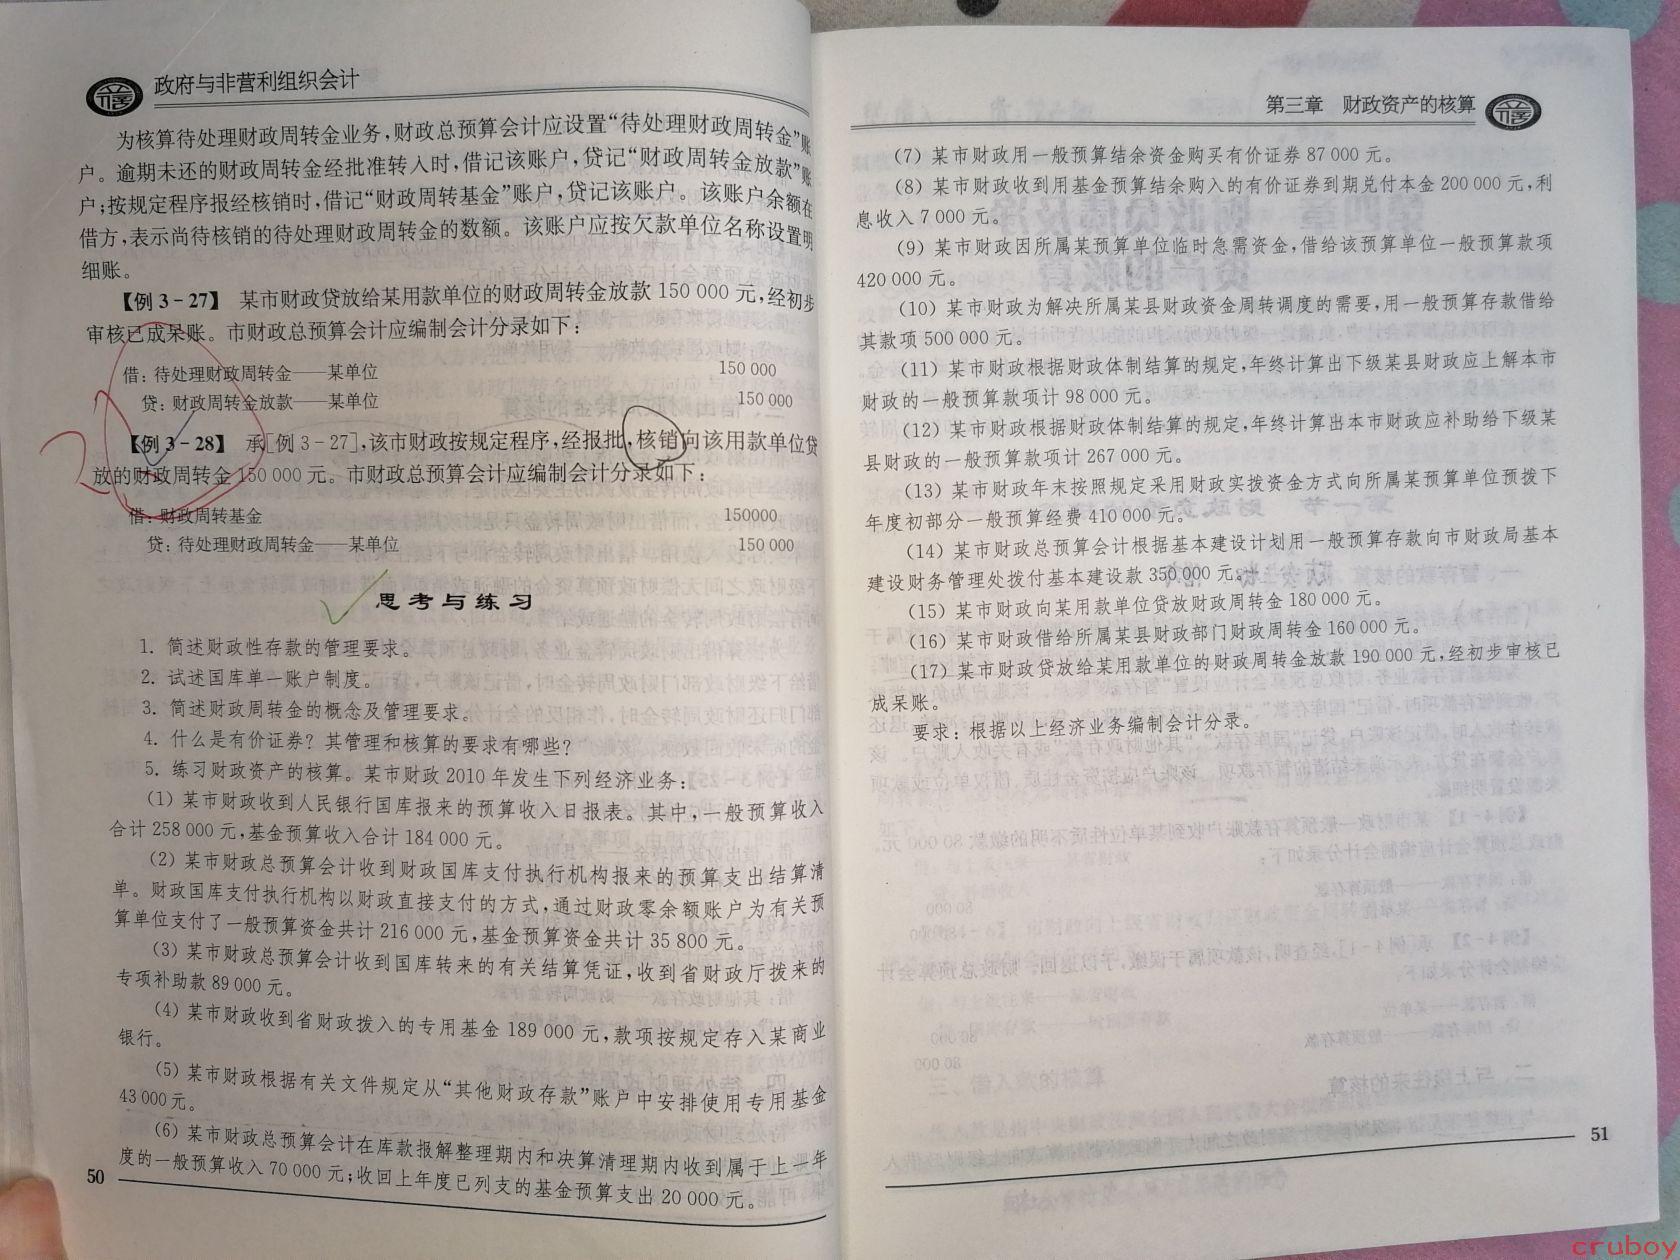 政府与非营利组织会计
为核算待处理财政周转金业务,财政总预算会计应设置“待处理财政周转金”账
户。逾期未还的财政周转金经批准转入时,借记该账户,贷记“财政周转金放款”账
户;按规定程序报经核销时,借记“财政周转基金”账户,贷记该账户。该账户余额在
借方,表示尚待核销的待处理财政周转金的数额。该账户应按欠款单位名称设置明
细账。
【例3-27】 某市财政贷放给某用款单位的财政周转金放款150 000元,经初步
审核已成呆账。市财政总预算会计应编制会计分录如下:
借:待处理财政周转金——某单位 150 000
贷:财政周转金放款——某单位 150 000
【例3-28】 承[例3-27],该市财政按规定程序,经报批,核销向该用款单位贷
放的财政周转金150 000元。市财政总预算会计应编制会计分录如下:
借:财政周转基金 150000
贷:待处理财政周转金——某单位 150 000
思考与练习
1. 简述财政性存款的管理要求。
2. 试述国库单一账户制度。
3. 简述财政周转金的概念及管理要求。
4. 什么是有价证券?其管理和核算的要求有哪些?
5. 练习财政资产的核算。某市财政2010年发生下列经济业务:
(1) 某市财政收到人民银行国库报来的预算收入日报表。其中,一般预算收入
合计258 000元,基金预算收入合计184 000元。
(2) 某市财政总预算会计收到财政国库支付执行机构报来的预算支出结算清
单。财政国库支付执行机构以财政直接支付的方式,通过财政零余额账户为有关预
算单位支付了一般预算资金共计216 000元,基金预算资金共计35 800元。
(3) 某市财政总预算会计收到国库转来的有关结算凭证,收到省财政厅拨来的
专项补助款89 000元。
(4) 某市财政收到省财政拨入的专用基金189 000元,款项按规定存入某商业
银行。
(5) 某市财政根据有关文件规定从“其他财政存款”账户中安排使用专用基金
43 000元。
(6) 某市财政总预算会计在库款报解整理期内和决算清理期内收到属于上一年
度的一般预算收入70 000元;收回上年度已列支的基金预算支出20 000元。
50
第三章 财政资产的核算
(7) 某市财政用一般预算结余资金购买有价证券87 000元。
(8) 某市财政收到用基金预算结余购入的有价证券到期兑付本金200 000元,利
息收入7 000元。
(9) 某市财政因所属某预算单位临时急需资金,借给该预算单位一般预算款项
420 000元。
(10) 某市财政为解决所属某县财政资金周转调度的需要,用一般预算存款借给
其款项500 000元。
(11) 某市财政根据财政体制结算的规定,年终计算出下级某县财政应上解本市
财政的一般预算款项计98 000元。
(12) 某市财政根据财政体制结算的规定,年终计算出本市财政应补助给下级某
县财政的一般预算款项计267 000元。
(13) 某市财政年末按照规定采用财政实拨资金方式向所属某预算单位预拨下
年度初部分一般预算经费410 000元。
(14) 某市财政总预算会计根据基本建设计划用一般预算存款向市财政局基本
建设财务管理处拨付基本建设款350 000元。
(15) 某市财政向某用款单位贷放财政周转金180 000元。
(16) 某市财政借给所属某县财政部门财政周转金160 000元。
(17) 某市财政贷放给某用款单位的财政周转金放款190 000元,经初步审核已
成呆账。
要求:根据以上经济业务编制会计分录。
51
cruboy